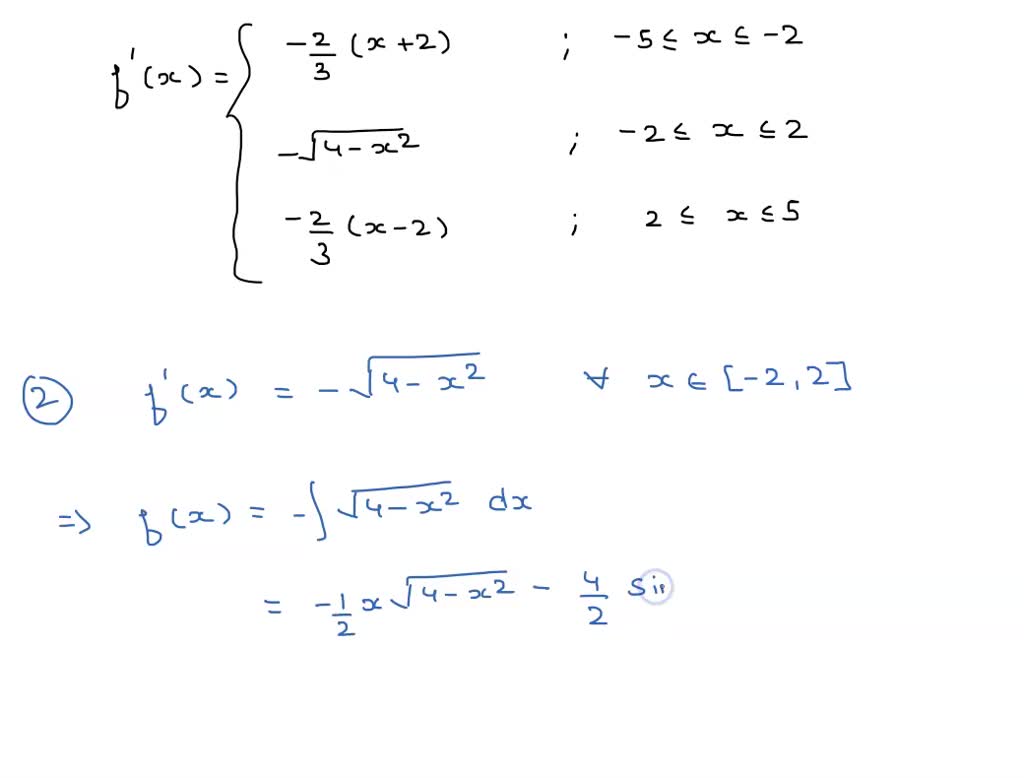 -2/3 (x+2) ; -5 ≤ x ≤ -2
f'(x) = {
-√(4-x²) ; -2 ≤ x ≤ 2
-2/3 (x-2) ; 2 ≤ x ≤ 5
② f'(x) = -√(4-x²) ∀ x ∈ [-2,2]
=> f(x) = -∫√(4-x²) dx
= -1/2 x√(4-x²) - 4/2 Sin